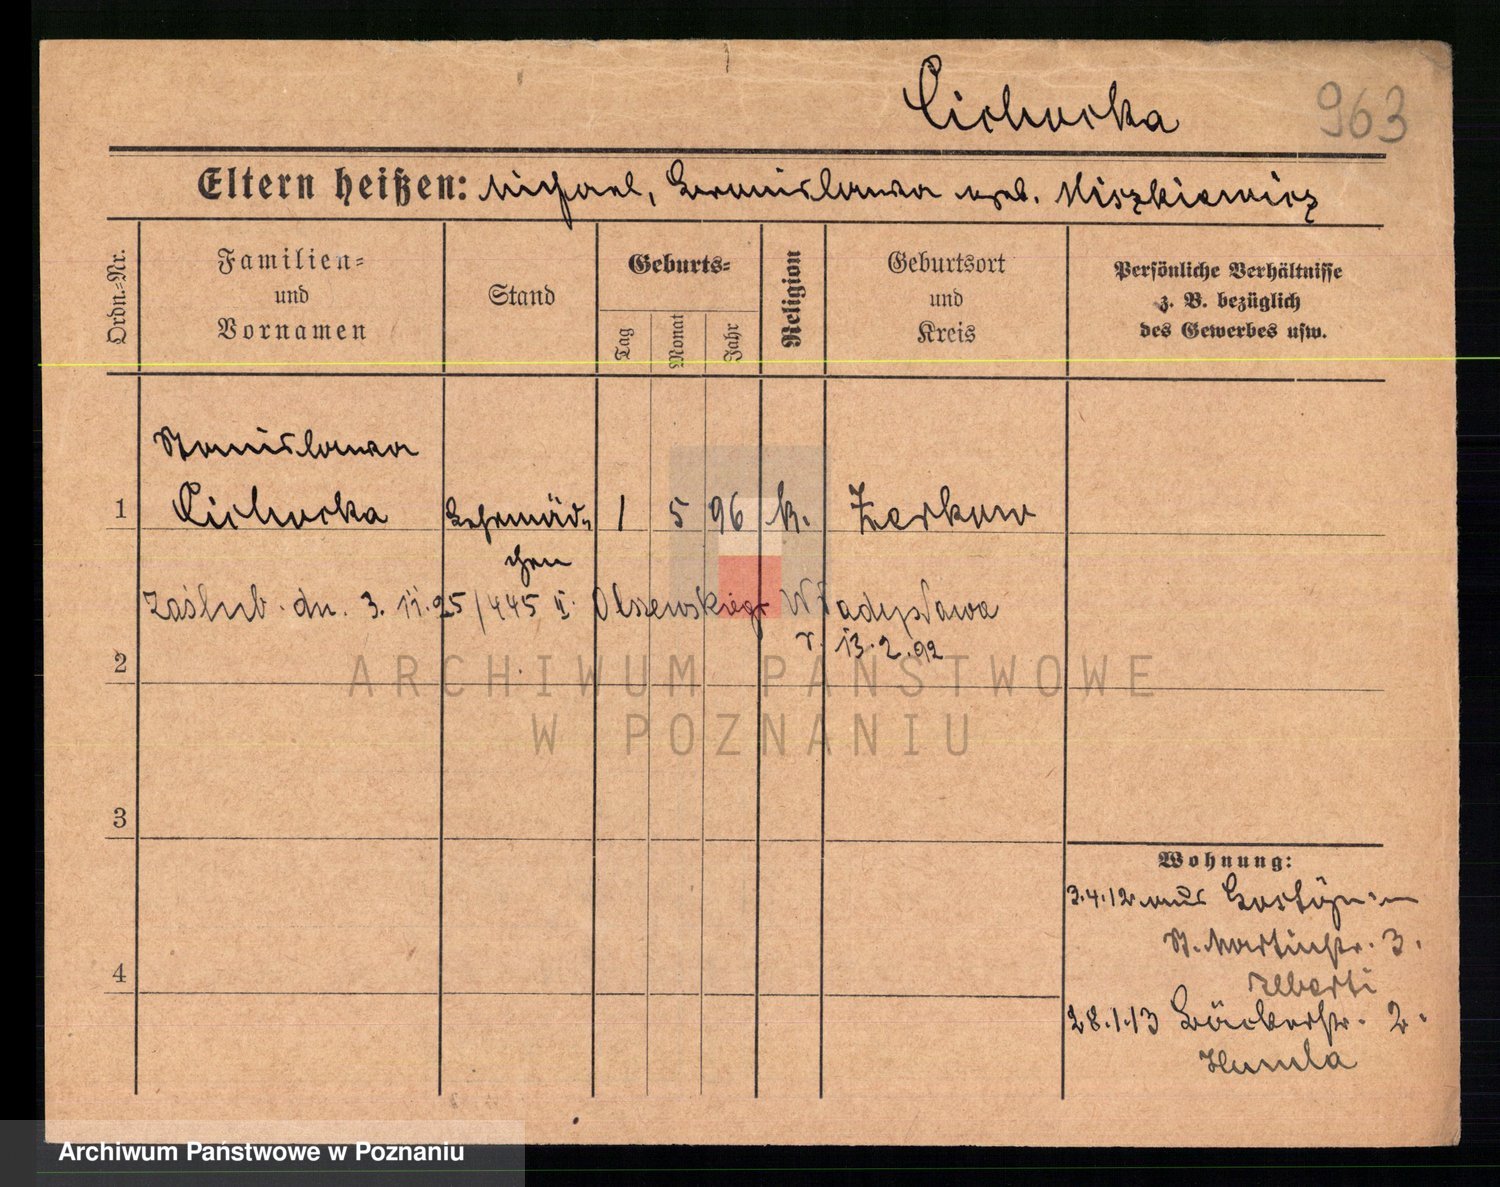 Cichocka 963
Eltern heißen: Michael, Bronislawa geb. Miszkiewicz
Ordn.-Nr.
Familien-
und
Vornamen
Stand
Geburts-
Tag
Monat
Jahr
Religion
Geburtsort
und
Kreis
Persönliche Verhältnisse
z. B. bezüglich
des Gewerbes usw.
Stanislawa
1 Cichocka Lehrmäd- 1 5 96 k. Zerkow
chen
zaślub. dn. 3. 11. 25/445 II. Olszewskiego Władysława
r. 13.2.92
2
ARCHIWUM PAŃSTWOWE
W POZNANIU
3
Wohnung:
3.4.12 aus Gostyn
St. Martinstr. 3.
4
28.1.13 Bäckerstr. 2.
Archiwum Państwowe w Poznaniu